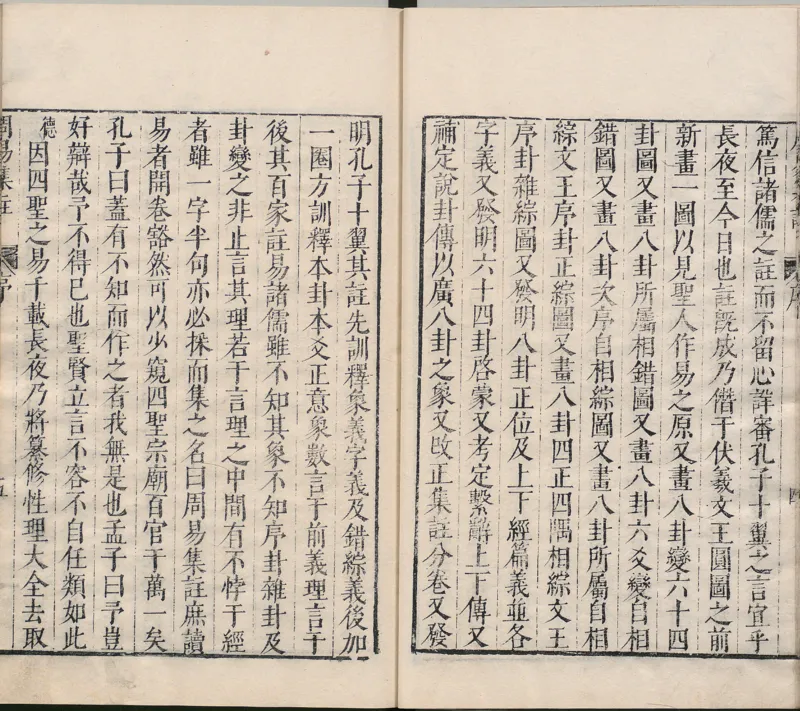 篤信諸儒之註而不留心詳審孔子十翼之言宜乎
長夜至今日也註既成乃僭于伏羲文王圓圖之前
新畫一圖以見聖人作易之原又畫八卦變六十四
卦圖又畫八卦所屬相錯圖又畫八卦六爻變自相
錯圖又畫八卦次序自相綜圖又畫八卦所屬自相
綜文王序卦正綜圖又畫八卦四正四隅相綜文王
序卦雜綜圖又發明八卦正位及上下經篇義並各
字義又發明六十四卦啓蒙又考定繫辭上下傳又
補定說卦傳以廣八卦之象又改正集註分卷又發
明孔子十翼其註先訓釋象義字義及錯綜義後加
一圈方訓釋本卦本爻正意象數言于前義理言于
後其百家註易諸儒雖不知其象不知序卦雜卦及
卦變之非止言其理若于言理之中間有不悖于經
者雖一字半句亦必採而集之名曰周易集註庶讀
易者開卷豁然可以少窺四聖宗廟百官于萬一矣
孔子曰蓋有不知而作之者我無是也孟子曰予豈
好辯哉予不得已也聖賢立言不容不自任類如此
德因四聖之易千載長夜乃將纂修性理大全去取
周易集註 序 五